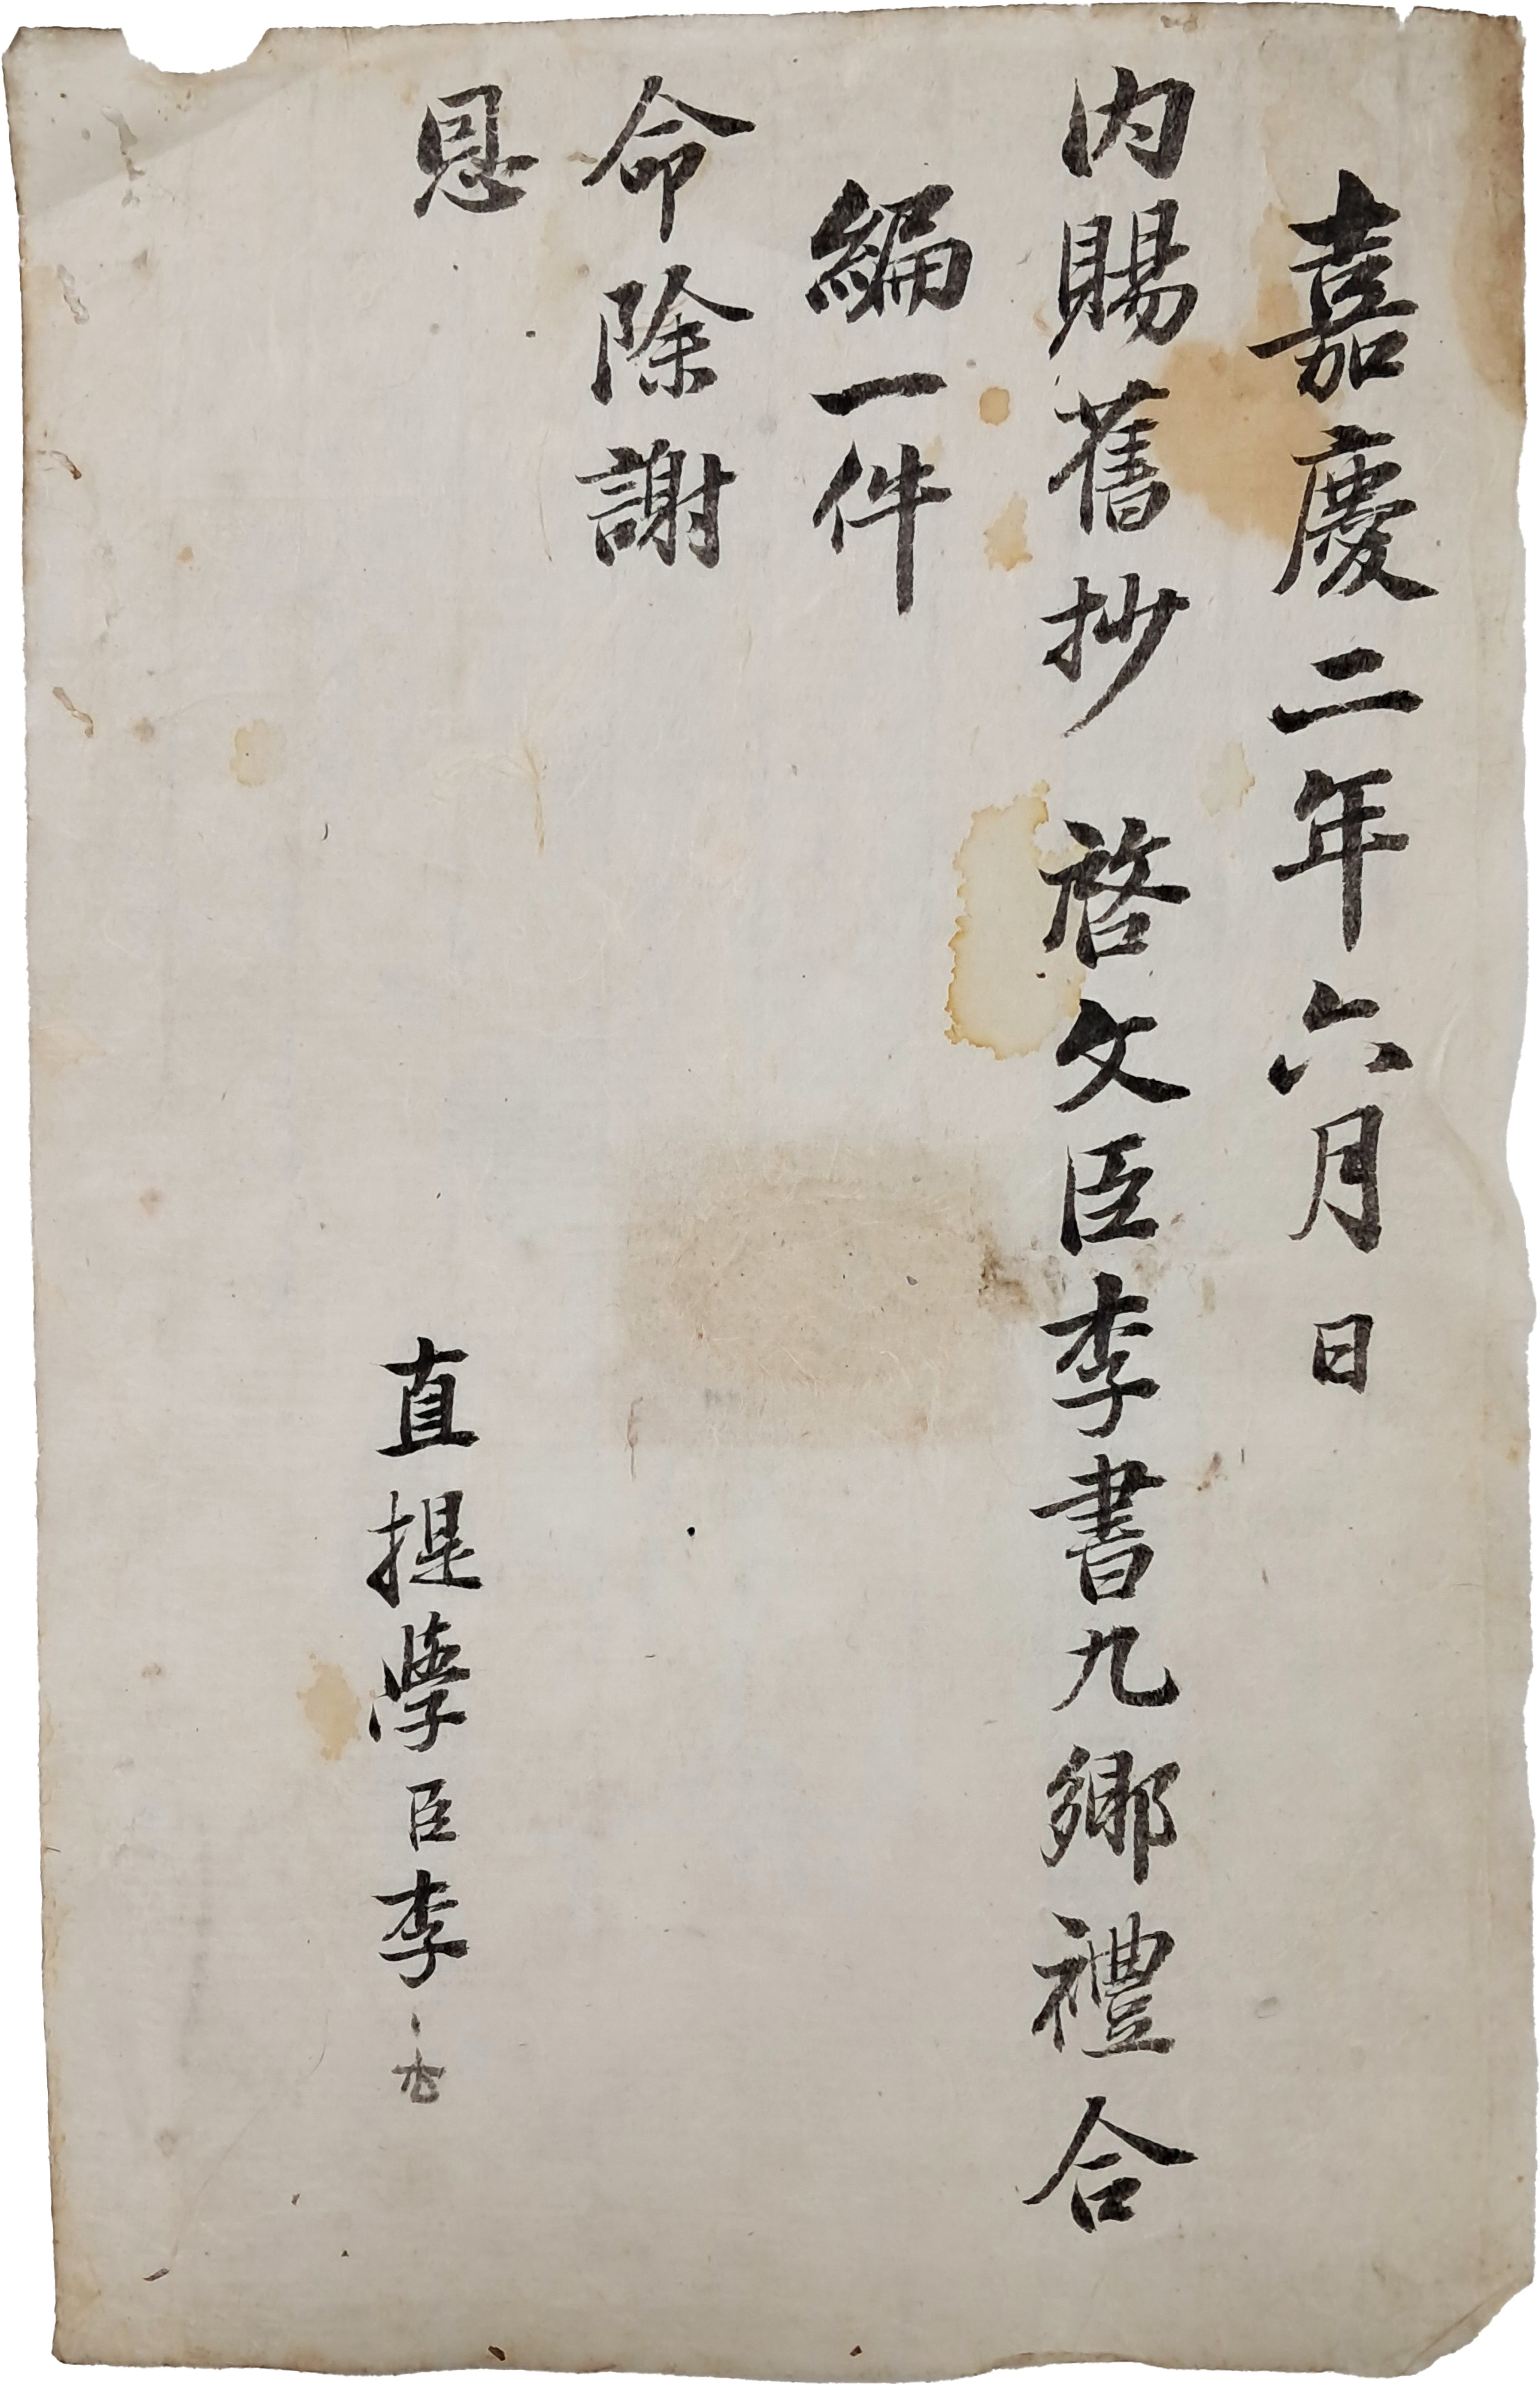 嘉慶二年六月 日
内賜舊抄 啓文臣李書九鄉禮合
編一件
命除謝
恩
直提學臣李